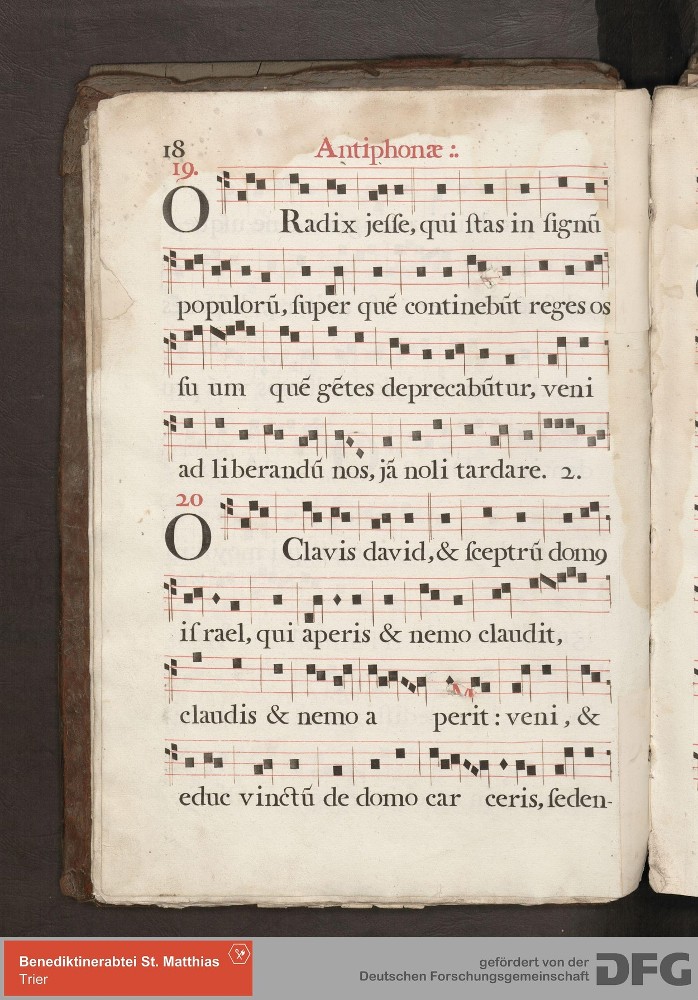 18
Antiphonæ :.
19.
O Radix jeſſe, qui ſtas in ſignũ
populorũ, ſuper quẽ continebũt reges os
ſu um quẽ gẽtes deprecabũtur, veni
ad liberandũ nos, jã noli tardare. 2.
20
O Clavis david, & ſceptrũ domꝯ
iſ rael, qui aperis & nemo claudit,
claudis & nemo a perit : veni , &
educ vinctũ de domo car ceris, ſeden-
Benediktinerabtei St. Matthias
Trier
gefördert von der
Deutschen Forschungsgemeinschaft
DFG